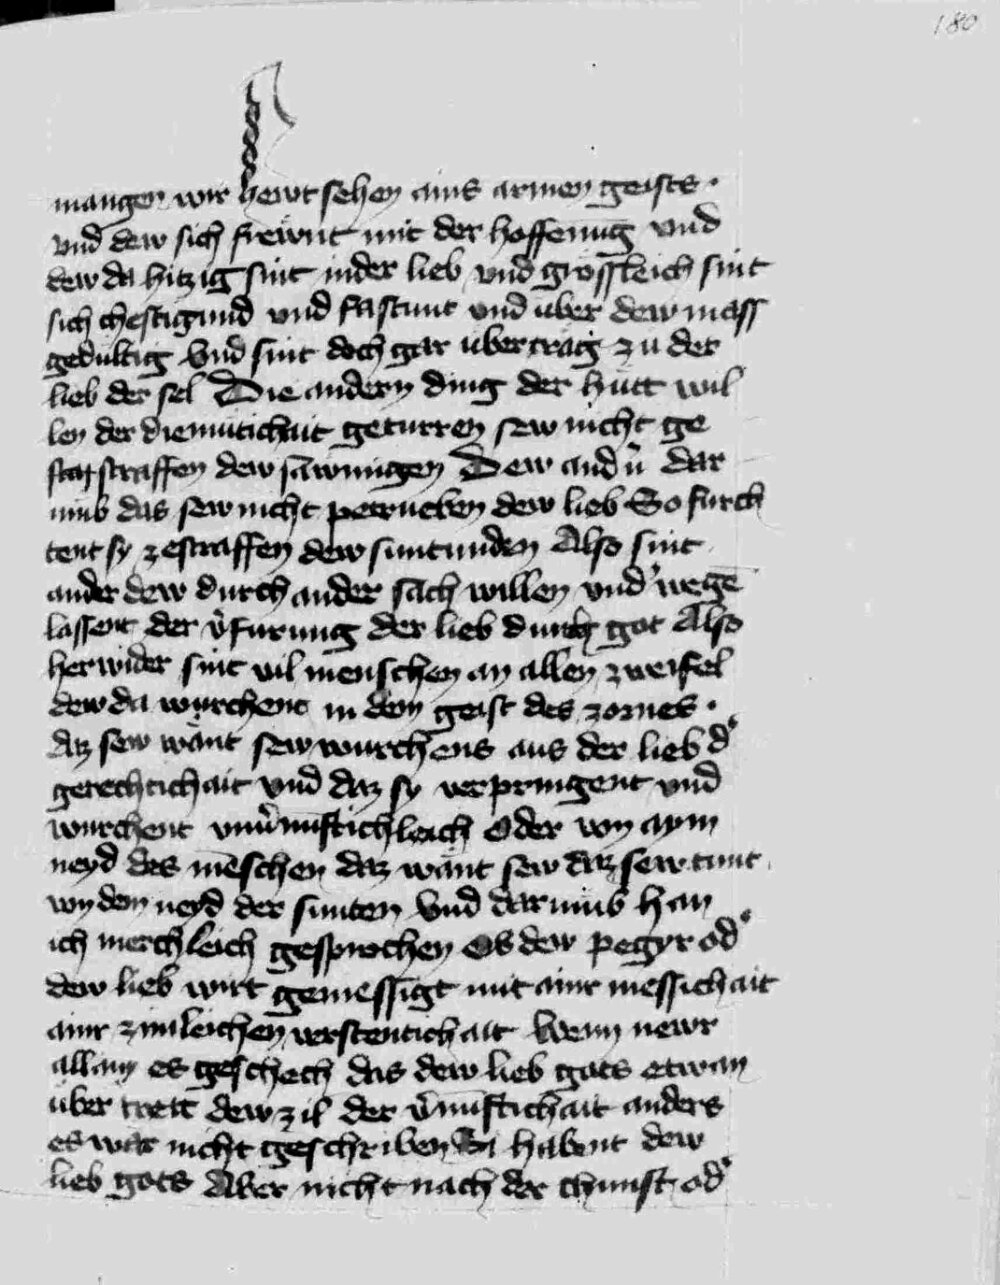 180
mangen wir hewt sehen ains armen geists ·
vnd dew sich frewnt mit der hoffenung vnd
dew da hitzig sint inder lieb vnd grössleich sint
sich chestigund vnd fastunt vnd über dew mass
gedultig Vnd sint doch gar über träg zu der
lieb der sel Die andern ding der hütt wil
len der diemütichait geturren sew nicht ge
straffen dew säwmigen Dew and dar
umb das sew nicht petrueben dew lieb So fürch
tent sy ze straffen dew suntunden Also sint
ander dew durch ander sach willen vnd wegē
lassent der v̉furung der lieb durch got Also
her wider sint vil menschen an allen zweifel
dew da würchent in dem geist des zornes ·
daz sew wänt sew würchens aus der lieb d̉
gerechtichait vnd daz sy verpringent vnd
würchent vnv̉nünftichleich Oder von aym
neyd des mēschen daz wänt sew daz sew tunt
von dem neyd der sunten Vnd darumb han
ich merchleich gesprochen Ob dew pegyr od̉
dew lieb wirt gemessigt mit ainr messichait
ainr zimleichen verstentichait Wenn newr
allain es geschech das dew lieb gots etwan
über trett dew zil der v̉nünftichait anders
es wär nicht geschriben Si habent dew
lieb gots Aber nicht nach der chunst od̉